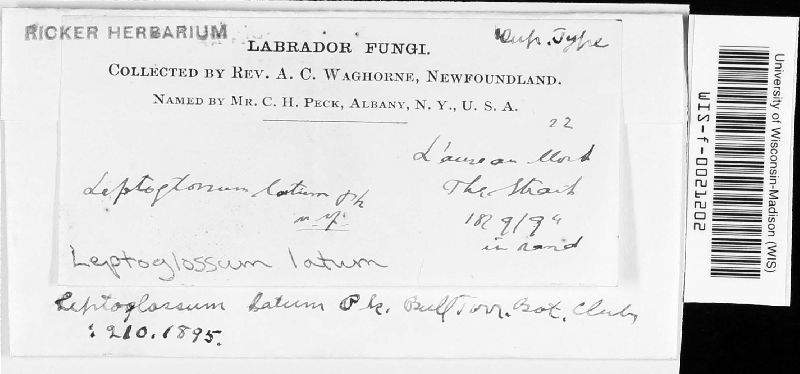 RICKER HERBARIUM
Dup. Type
LABRADOR FUNGI.
COLLECTED BY REV. A. C. WAGHORNE, NEWFOUNDLAND.
NAMED BY MR. C. H. PECK, ALBANY, N. Y., U. S. A.
22
L'anse au
Leptoglossum latum Pk
The Strait
n. sp.
in sand
Leptoglossum latum
Leptoglossum latum Pk. Bull Torr. Bot. Club,
210. 1895.
University of Wisconsin-Madison (WIS)
WIS-f-0021202